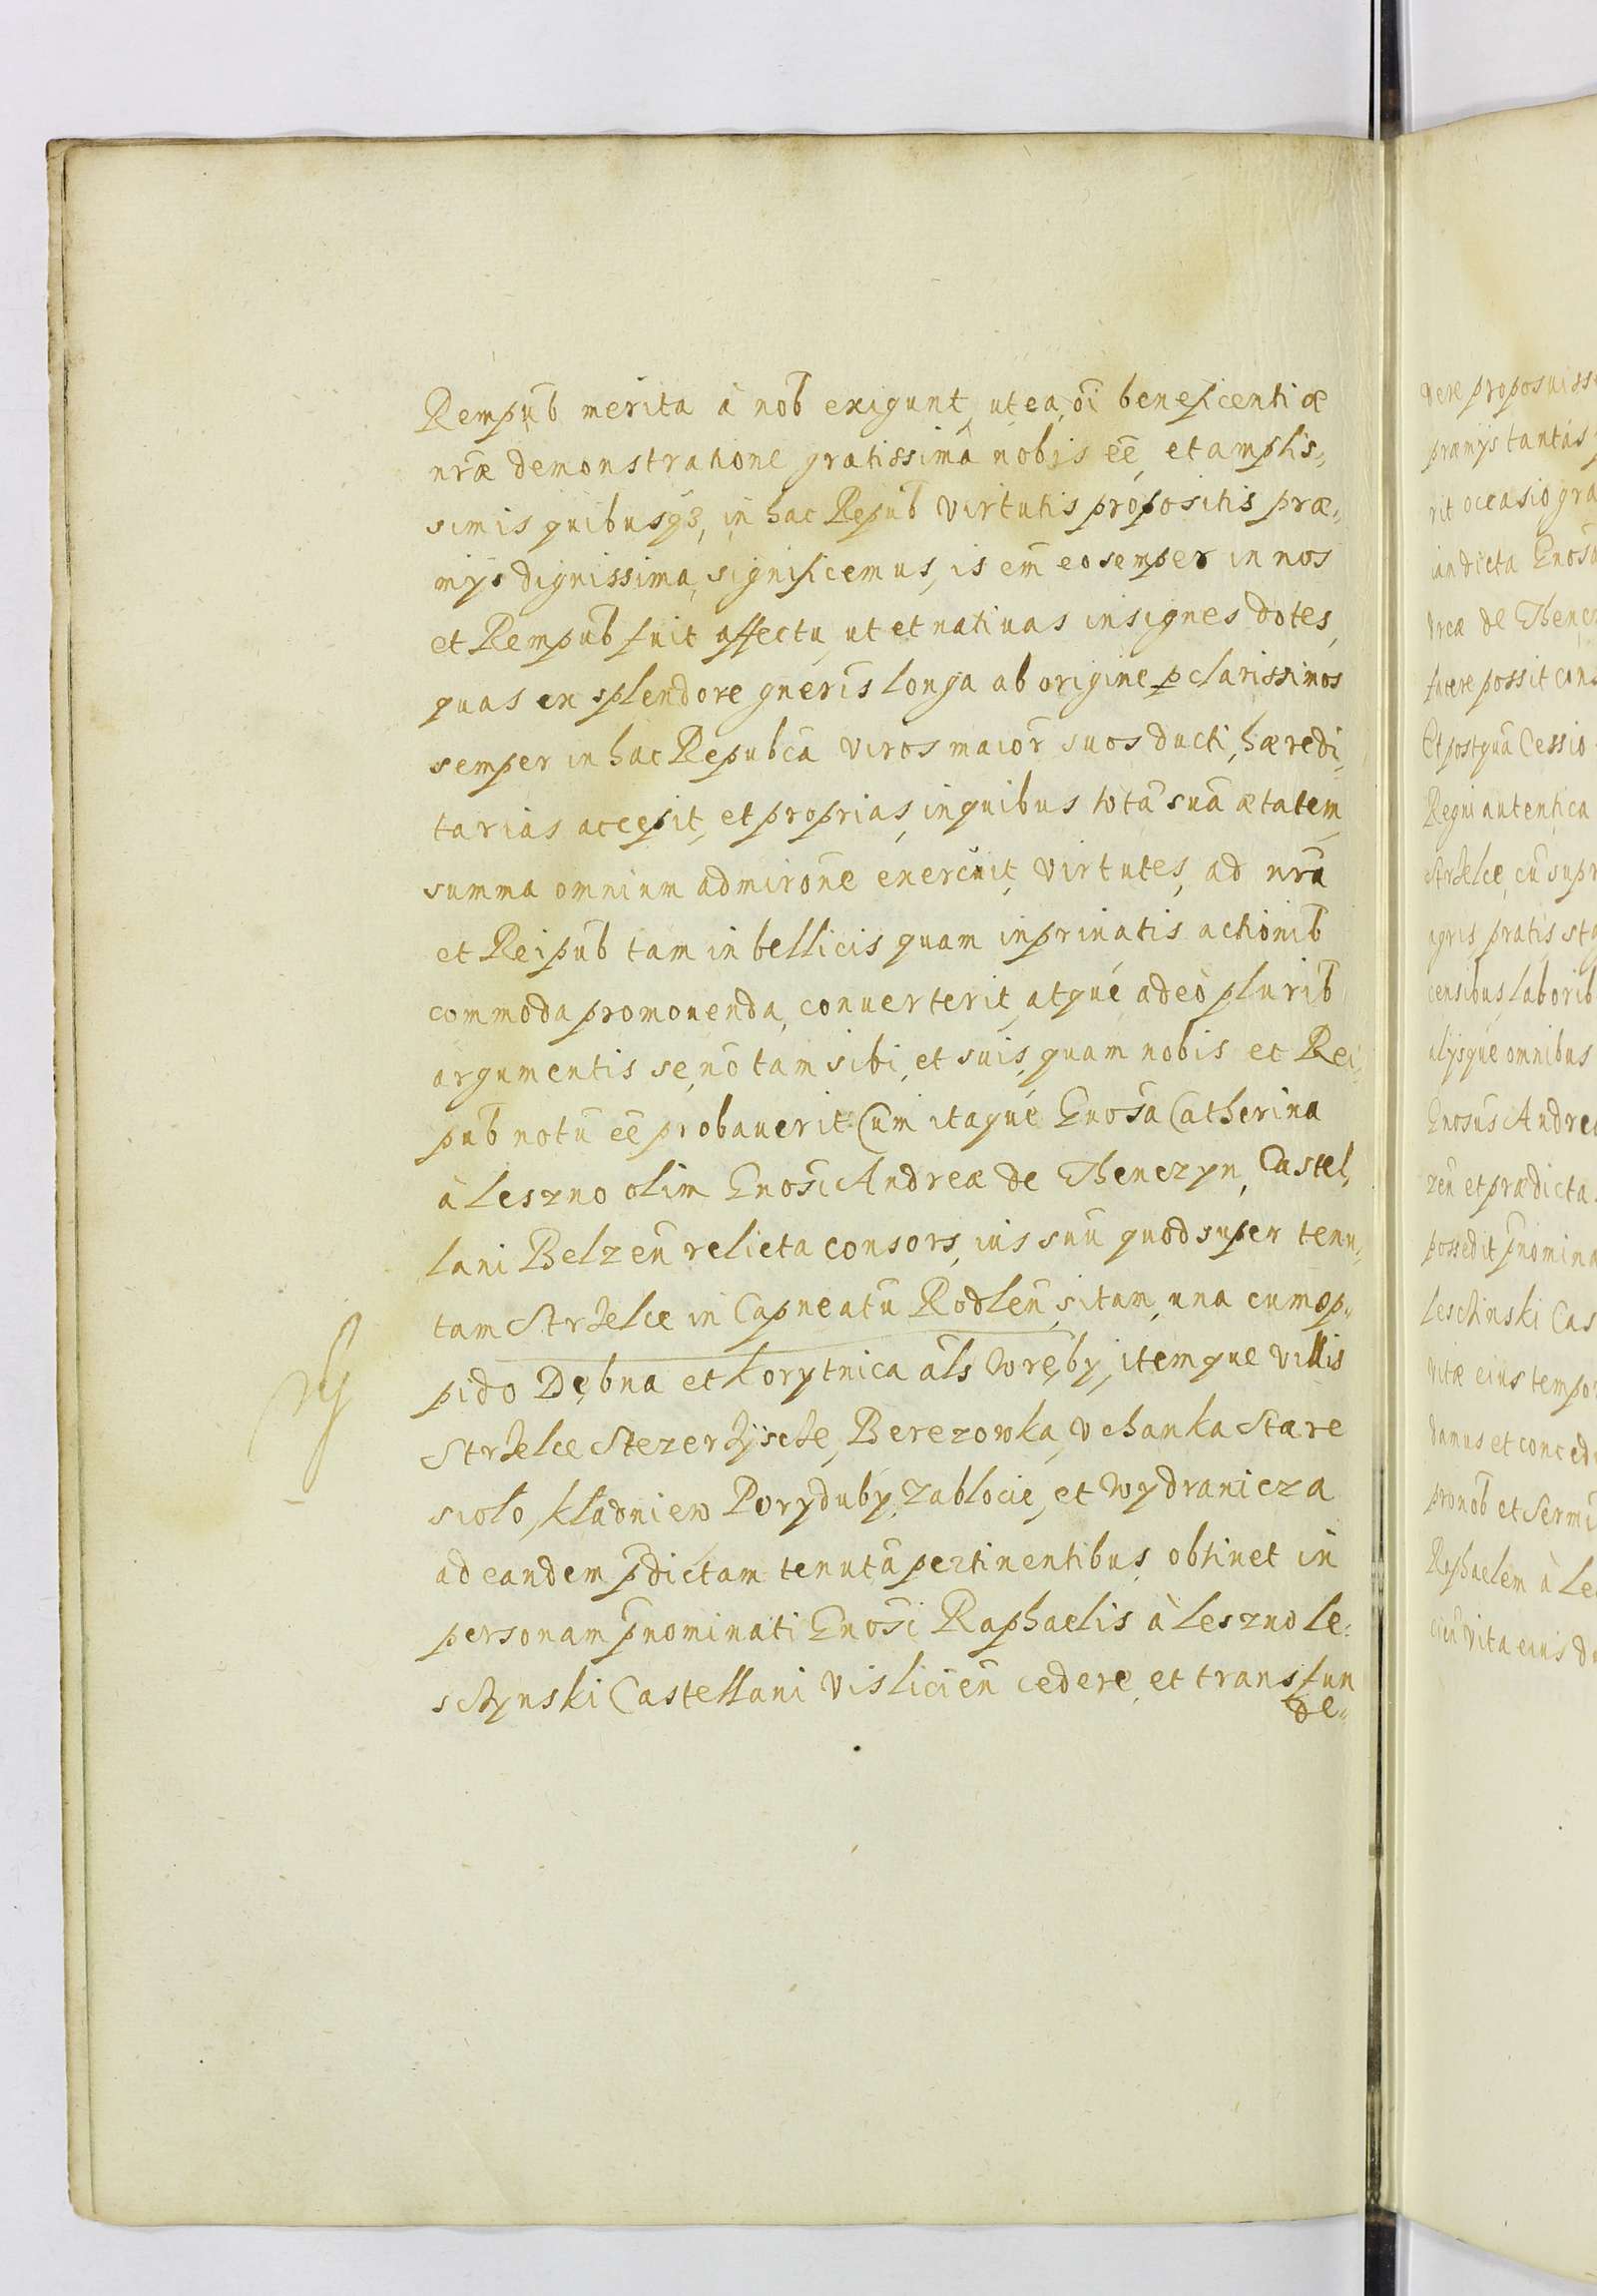 Rempub̄ merita à nob̄ exigunt, ut ea, oī beneficentiæ
nr̄æ demonstratione gratissimā nobis eē, et amplis„
simis quibusq3, in hac Repub̄ virtutis propositis præ„
mÿs dignissima, significemus, is em̄ eo semper in nos
et Rempub̄ fuit affectu, ut et natiuas insignes dotes,
quas ex splendore gn̄eris longa ab origine p̄clarissimos
semper in hac Repubcā viros maior̄ suos ducti, hæredi„
tarias accepit, et proprias, in quibus totā suā ætatem,
summa omnium admirōne exercuit, virtutes, ad nr̄a
et Reipub̄ tam in bellicis quam in priuatis actionib̄
commoda promouenda, conuerterit, atque adeò plurib̄
argumentis se, nō tam sibi, et suis, quam nobis et Rei„
pub̄ notū eē probauerit. Cum itaque Gnosā Catherina
à Leszno olim Gnosī Andreæ de Thenczyn, Castel„
lani Belzen̄ relicta consors, ius suū quod super tenu„
tam Strzelce in Capneatū Rodlen̄, sitam, una cum op„
pido Dębna et Korytnica al̄s Wręby, itemque villis
Strzelce Stezerzÿscze, Berezowka, Vchanka Stare
sioło, Kładniew Poryduby, Zablocie, et Wydranicza
ad eandem p̄dictam tenutā pertinentibus, obtinet in
personam p̄nominati Gnosī Raphaelis à Leszno Le„
schynski Castellani Vislicien̄ cedere, et transfun
de„
dere proposuiss
præmÿs tantas
rit occasio gra
iandicta Gnosa
dreæ de Thencz
facere possit cons
Et postquā Cessio
Regni autentica
Strzelce, cū supr
agris pratis sta
censibus, laborib
alÿsque omnibus
Gnosus Andrea
zen̄ et prædicta
possedit p̄nomina
Leschinski Cas
vitæ eius tempo
damus et conced
pro nob̄ et Sermi
Raphaelem à Le
cien̄ vita eius du